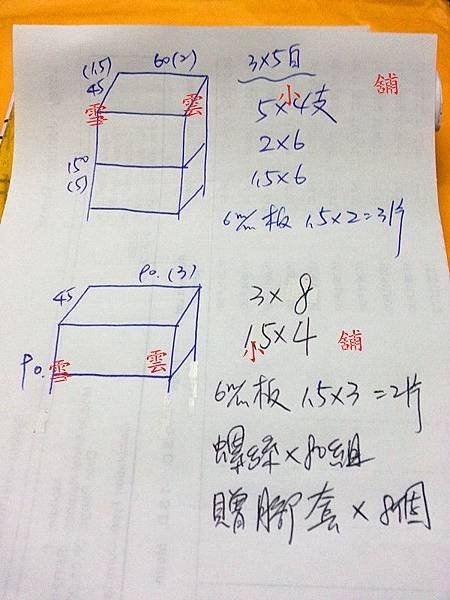 60(2)
(1.5)
45
150
(5)
3×5白
5×4支
2×6
1.5×6
6㎜板 1.5×2=3片
90.(3)
45
90.
3×8
1.5×4
6㎜板 1.5×3=2片
螺絲×80組
贈腳套×8個
雪 雲 小 舖
雪 雲 小 舖